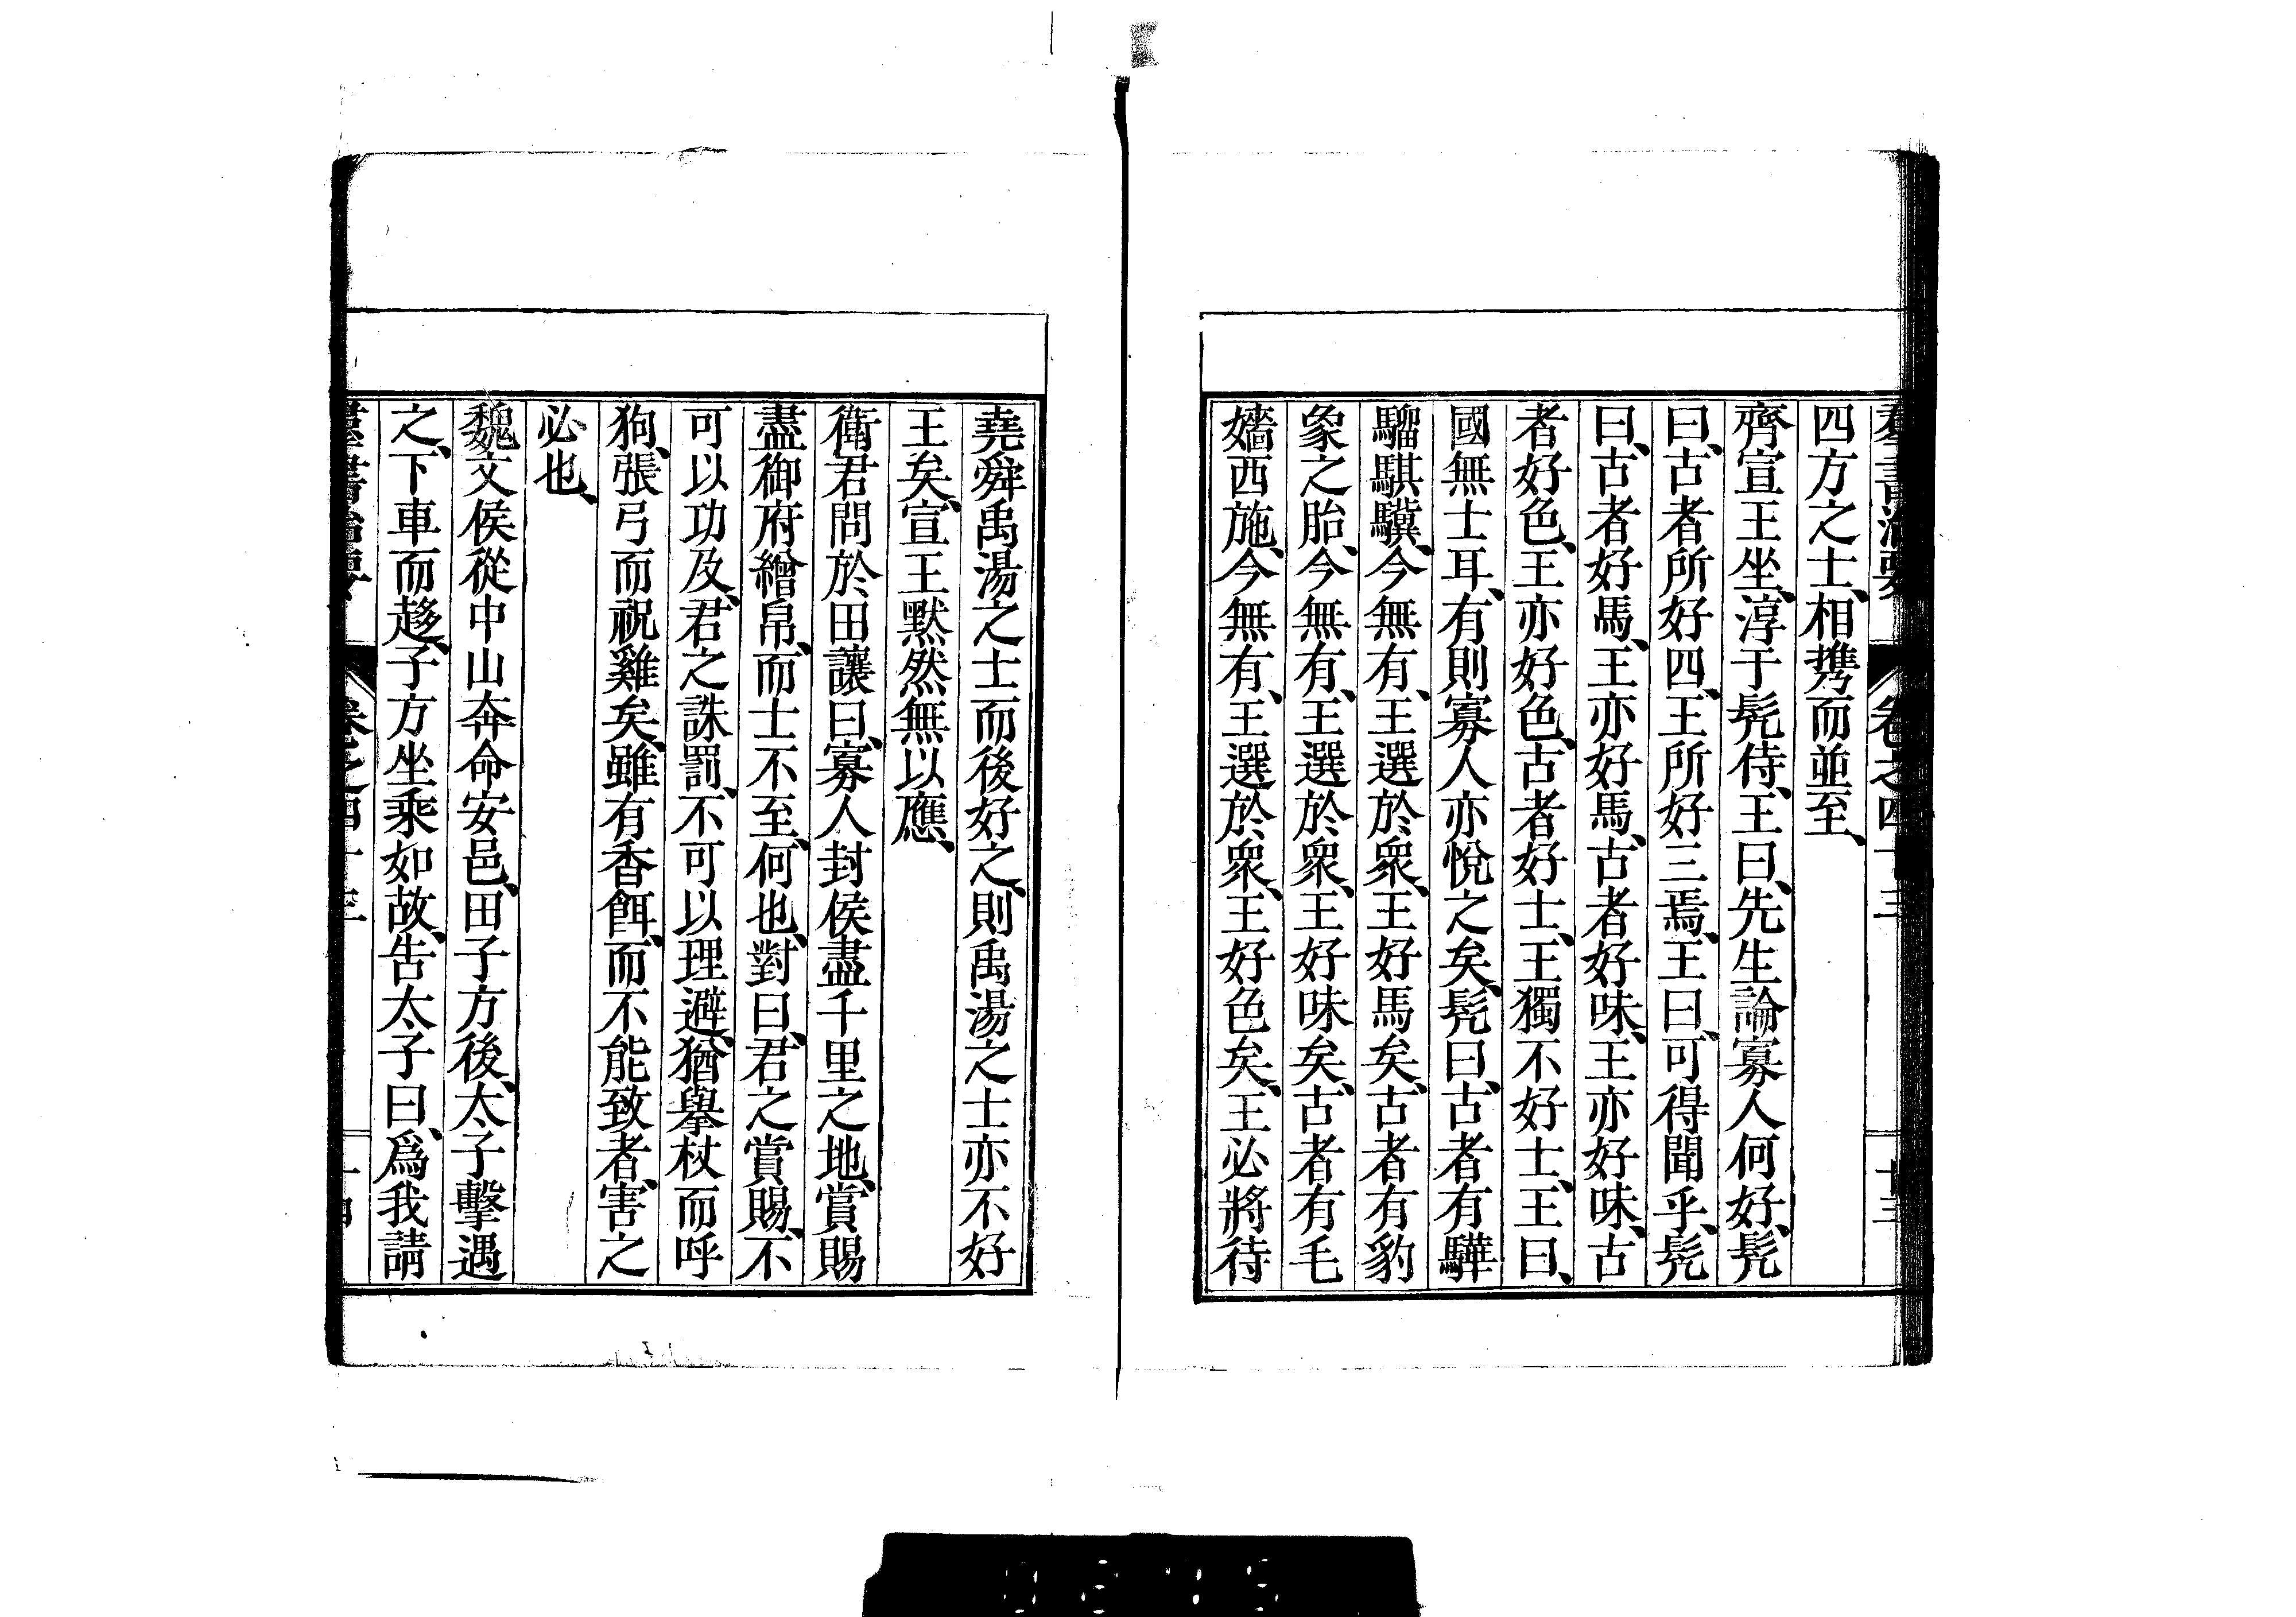 羣書治要 卷之四十三 廿三
四方之士、相携而並至、
齊宣王坐、淳于髡侍、王曰、先生論寡人何好、髡
曰、古者所好四、王所好三焉、王曰、可得聞乎、髡
曰、古者好馬、王亦好馬、古者好味、王亦好味、古
者好色、王亦好色、古者好士、王獨不好士、王曰、
國無士耳、有則寡人亦悅之矣、髡曰、古者有驊
騮騏驥、今無有、王選於衆、王好馬矣、古者有豹
象之胎、今無有、王選於衆、王好味矣、古者有毛
嬙西施、今無有、王選於衆、王好色矣、王必將待
堯舜禹湯之士而後好之、則禹湯之士亦不好
王矣、宣王默然無以應、
衛君問於田讓曰、寡人封侯盡千里之地、賞賜
盡御府繒帛、而士不至、何也、對曰、君之賞賜、不
可以功及、君之誅罰、不可以理避、猶擧杖而呼
狗、張弓而祝雞矣、雖有香餌、而不能致者、害之
必也、
魏文侯從中山奔命安邑、田子方後、太子擊遇
之、下車而趍、子方坐乘如故、吿太子曰、爲我請
羣書治要 卷之四十三